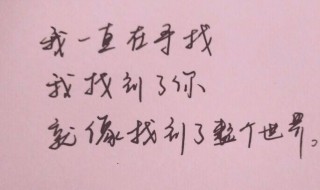 我一直在寻找
我找到了你
就像找到了整个世界。